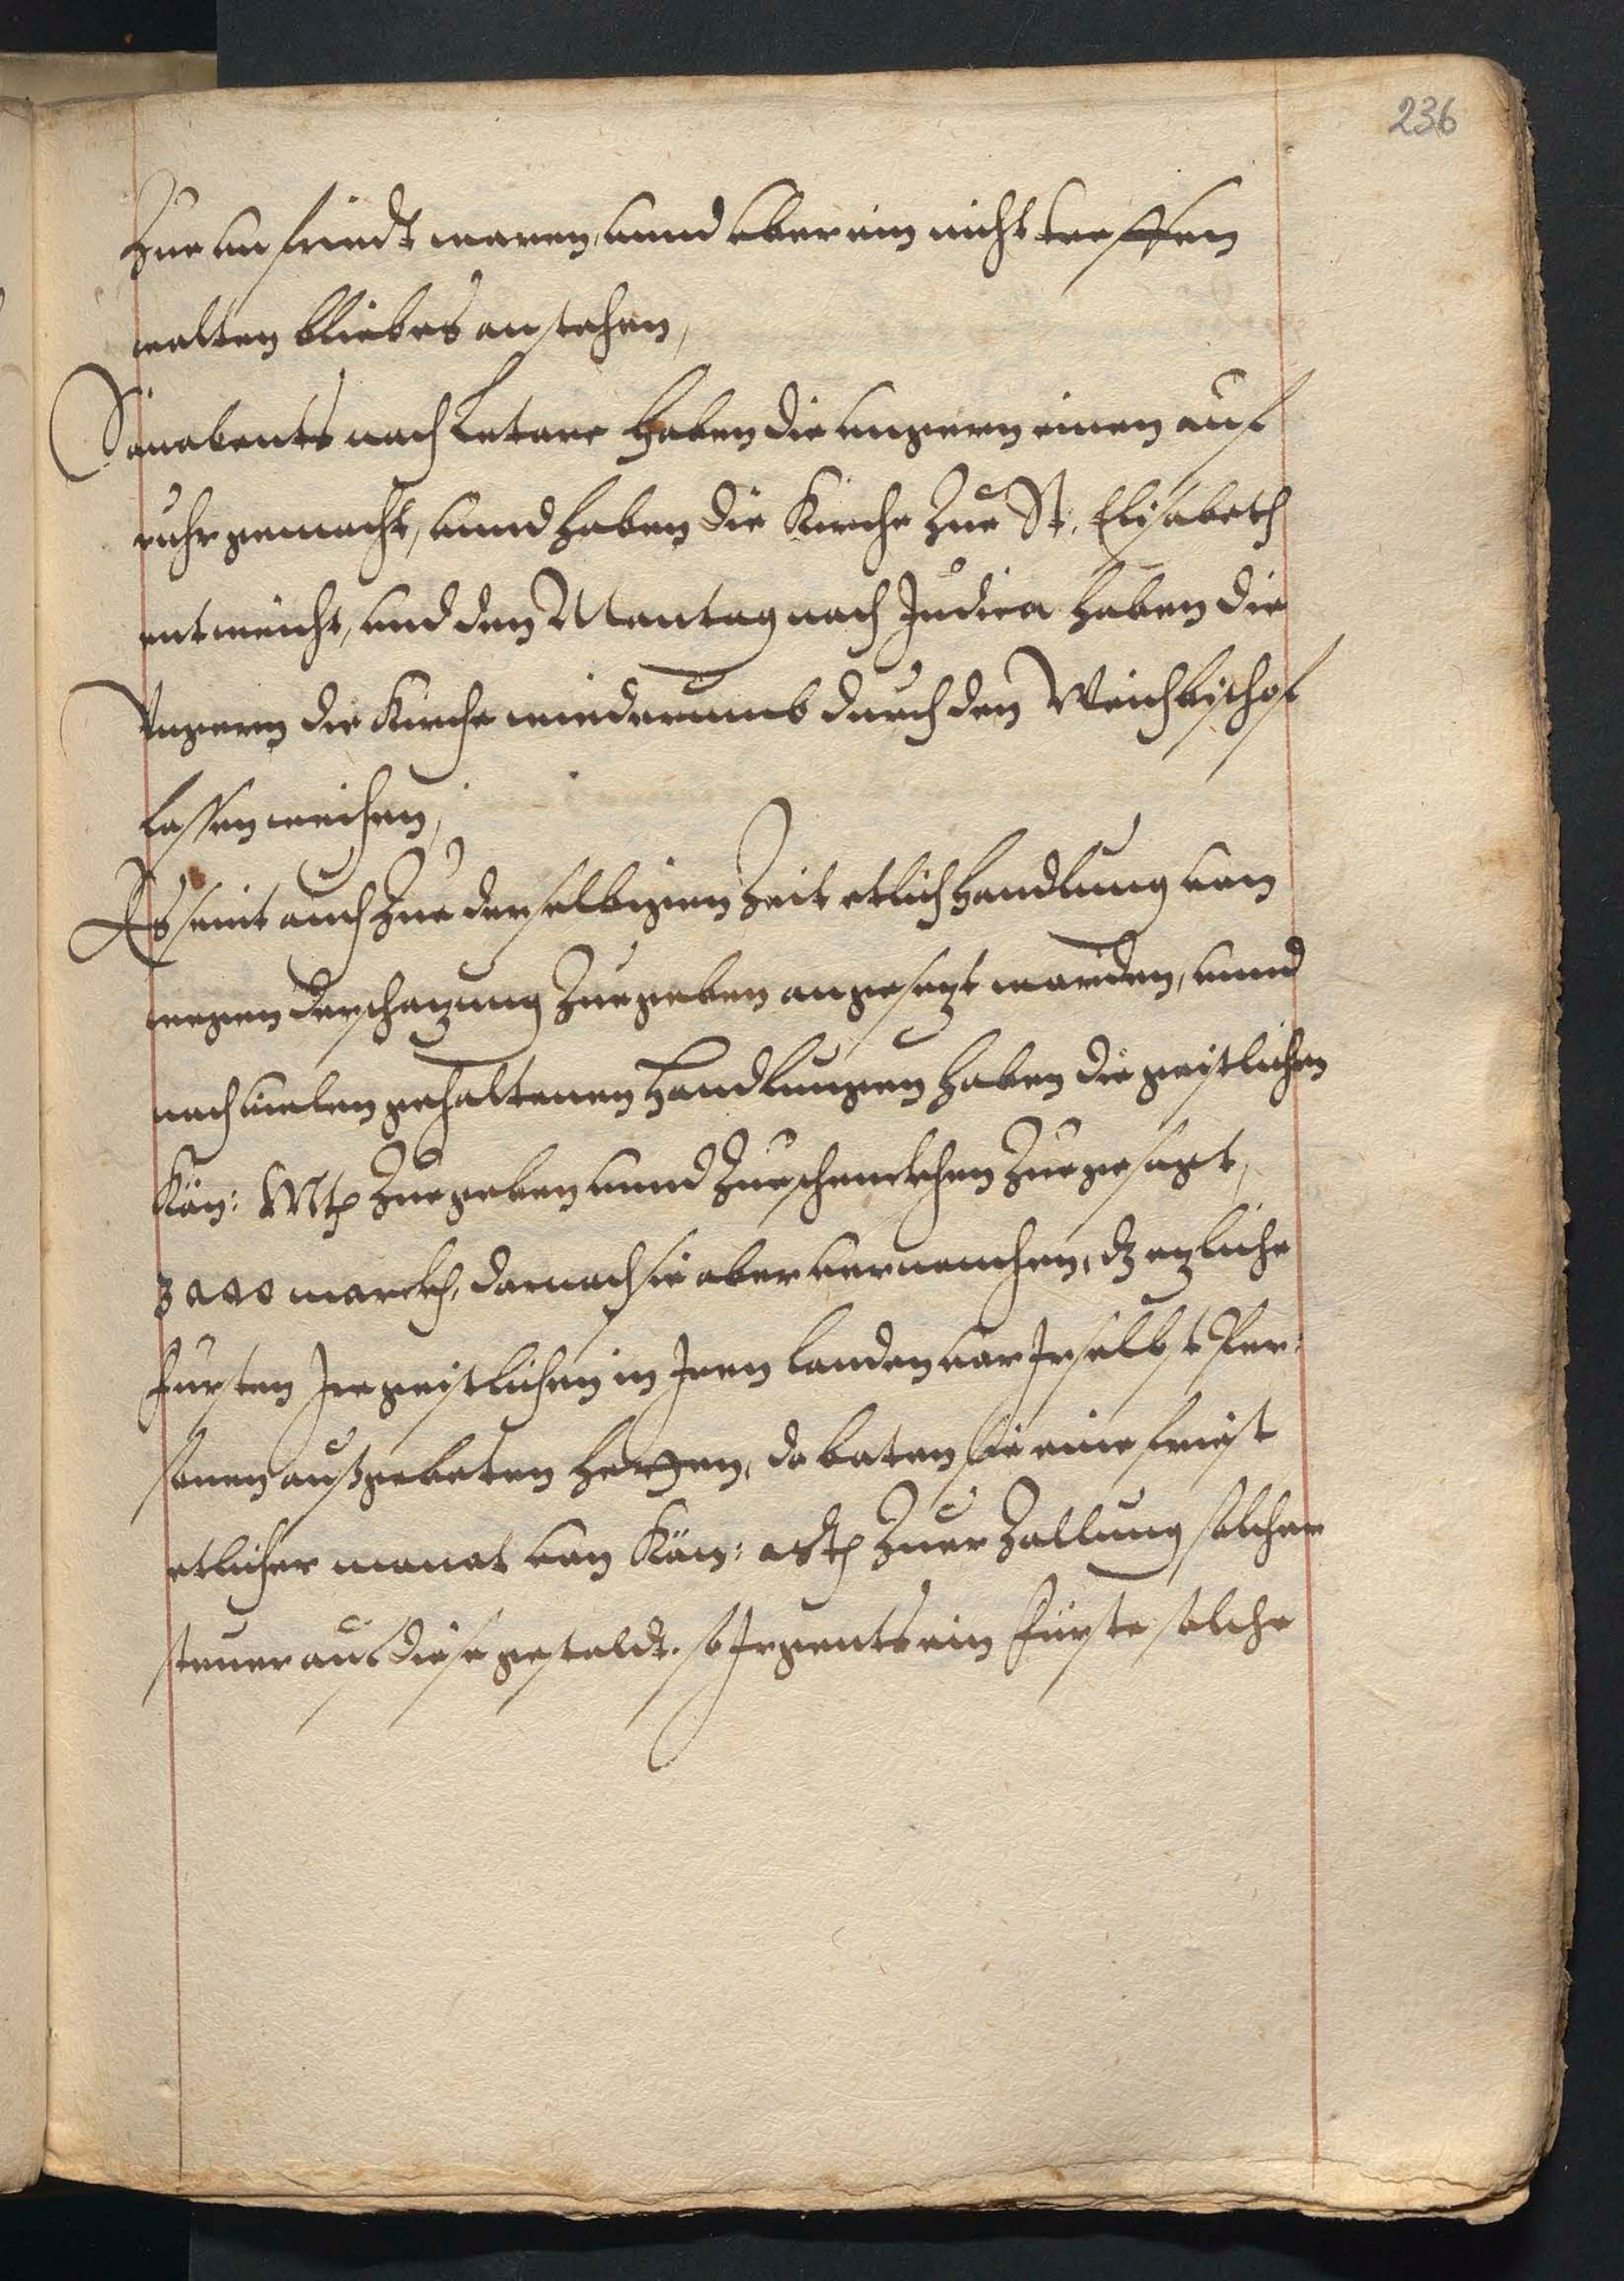 236
Zue unfriedt waren, unnd uberein nicht treffen
wolten bliebes anstehen,
Sonabents nach Letare haben die ungern einen auf
ruhr gemacht, unnd haben die Kirche Zue St. Elisabeth
entweicht, und den Montag nach Judica haben die
Ungern die Kirche wiederumb durch den Weichbischof
lassen weichen,
Es seint auch Zue derselbigen Zeit etlich Handlung von
wegen der schazung Zuegeben angesezt worden, unnd
nach vielen gehaltenen Handlungen haben die geistlichen
Kön: Mtt Zuegeben unnd Zueschenckhen Zuegesagt,
3000 marckh, darnach sie aber vernemen, dz ezliche
fursten Ire geistlichen in Iren landen vor Ir selbst Per:
sonen außgebeten hetten, do baten sie eine frist
etlicher monat von Kön: Mtt Zuer Zallung solcher
steuer auf diese gestaldt. so Irgents ein fürste solche